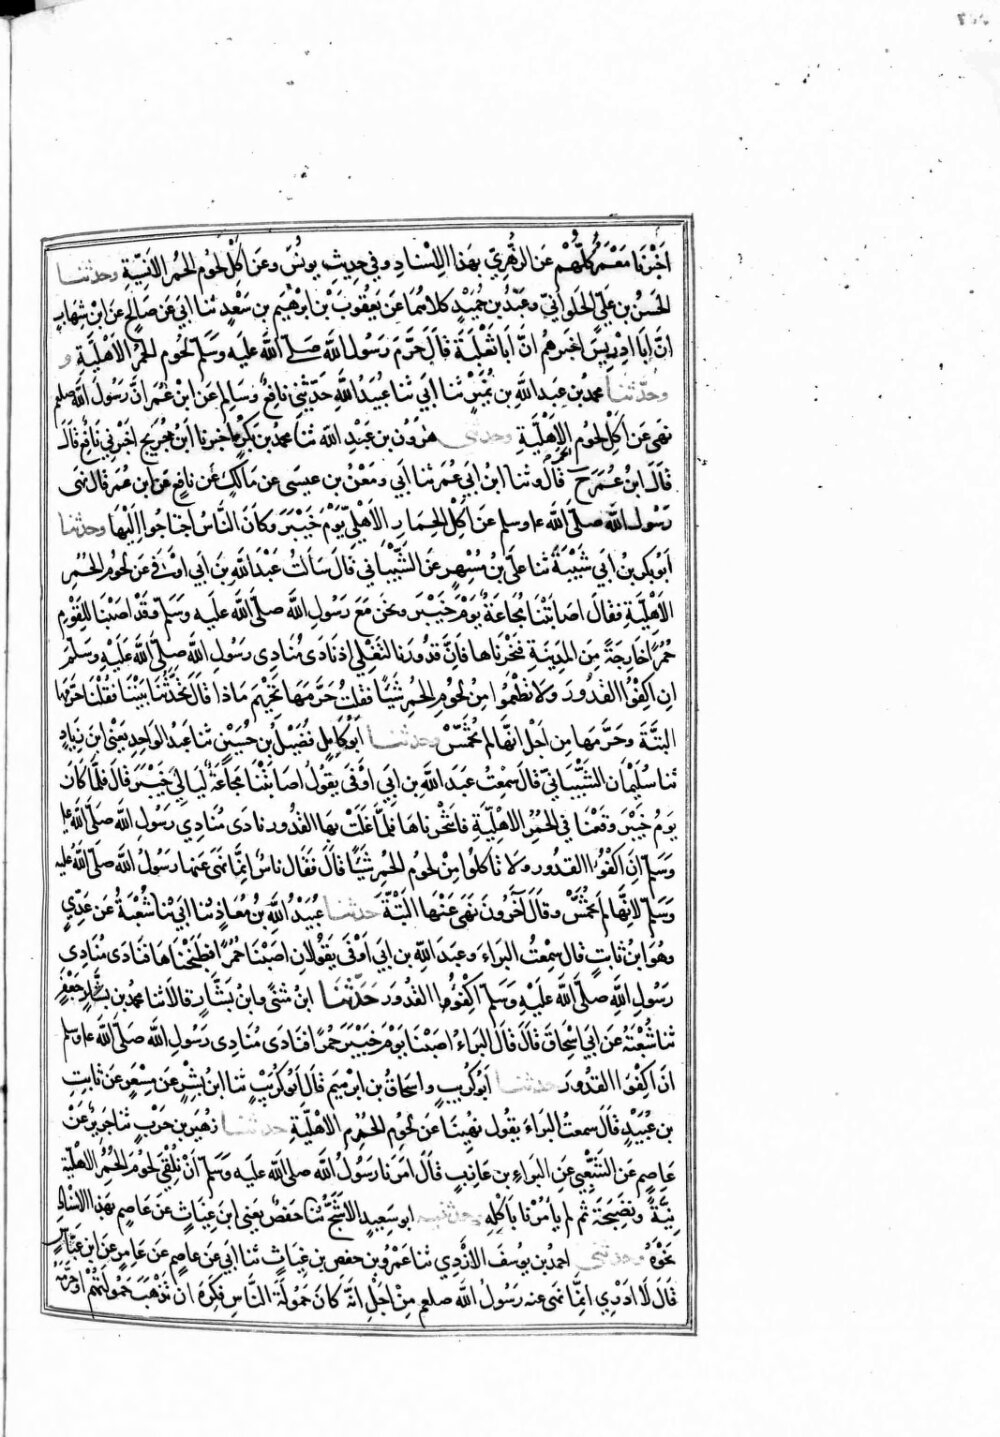 اَخْبَرَنَا مَعْمَرٌ كُلُّهُمْ عَنِ الزُّهْرِيِّ بِهَذَا الْاِسْنَادِ وفي حَدِيثِ يونُسَ وَعَنْ اَكْلِ لُحُومِ الحُمُرِ الْاِنْسِيَّةِ وحدثنا
الحَسَنُ بن عَلِيٍّ الحُلْوانيُّ وعَبْدُ بن حُمَيْدٍ كلاهُمَا عَنْ يَعقُوبَ بْن ابْرَهيم بن سَعْدٍ ثنا ابي عَن صَالِحٍ عَن ابْن شِهَابٍ
انَّ ابَا ادْرِيسَ اخبرهم انَّ اَبَا ثَعْلَبَةَ قَالَ حَرَّمَ رَسُولُ اللهِ صلّى اللهُ عليه وسَلّم لحُوم الحُمُر الاَهْليَّةِ و
وحدّثنا محمدُ بن عبدِ اللَّهِ بن نُمَيْرٍ ثنا ابي ثنا عُبَيدُ اللهِ حَدّثَني نافِعٌ وَسَالِم عَن ابْن عُمَرَ انَّ رَسُولَ الله صلعم
نهَى عَن اَكْلِ لحُوم الحمر الاَهْلِيَّةِ وحدثني هٰرون بن عَبْدِ الله ثنا محمدُ بن بَكْرٍ اخبرنا ابنُ جُرَيج اخْبَرَني نَافِعٌ قَالَ
قَالَ ابنُ عُمَرَ ح قالَ وثنا ابنُ ابي عُمَرَ ثنا اَبي ومَعْنُ بن عيسَى عن مَالِكٍ عَن نَافِعٍ عَن ابن عُمَرَ قال نهى
رَسُولُ الله صلّى الله ع‍ وسلم عَن اَكْلِ الحِمَارِ الاَهْليِّ يَوْمَ خَيْبَرَ وكانَ النَّاسُ احْتَاجُوا اِلَيْهَا وحدثنا
ابُو بَكر بنُ ابي شَيْبَةَ ثنا عَلي بنُ مُسْهِرٍ عَن الشَّيْبَاني قَالَ سَالتُ عَبْدَ اللهِ بنَ ابي اَوْفى عَن لحُوم الحُمُرِ
الاَهْلِيَّةِ فقالَ اصَابَتْنَا مَجَاعَةٌ يَوْمَ خَيْبَرَ وَنحْنُ مَعَ رَسُولِ اللهِ صَلّى اللهُ عليه وَسَلّم وقَدْ اصَبْنَا للقَوْمِ
حُمُرًا خَارِجَةً مِنَ المَدِينَةِ فنَحَرْنَاهَا فَاِنَّ قُدُورَنا لتَغْلي اذ نَادَى مُنَادِي رَسُولِ اللهِ صَلّى اللهُ عَلَيْهِ وسَلَّمَ
ان اكْفِؤُا القُدُورَ وَلاَ تَطْعَمُوا مِنْ لحُومِ الحُمُرِ شَيْئًا فَقُلْتُ حَرَّمَهَا تَحْرِيْم مَاذا قَالَ تحَدَّثْنَا بَيْنَنَا فقُلْنَا حَرَّمَهَا
البَتَّةَ وحَرَّمَهَا مِن اَجْلِ انَّهَا لم تُخَمَّسْ وحدثنا ابُو كامِلٍ فُضَيْلُ بن حُسَيْنٍ ثنا عَبدُ الوَاحِدِ يَعْني ابن زيادٍ
ثنا سُلَيْمَانُ الشَّيْبَانيُّ قَالَ سَمِعْتُ عَبْدَ اللهِ بن ابي اَوْفَى يقُولُ اصَابَتْنَا مجَاعَةٌ لَيَاليَ خَيْبَرَ قالَ فَلَمَّا كَانَ
يَومُ خَيْبَر وَقَعْنَا في الحُمُرِ الاهْلِيَّةِ فانتَحَرْناهَا فَلَمّا غَلَتْ بهَا القُدُور نَادَى مُنَادِي رَسُولِ اللهِ صَلّى اللهُ عليه
وَسَلّم اَن اكْفِؤُا القُدُورَ وَلاَ تَاكُلُوا مِنْ لحُوم الحُمُرِ شَيْئًا قَالَ فَقَال ناسٌ اِنَّمَا نهَى عَنهَا رَسُولُ اللهِ صلّى اللهُ عليه
وَسَلّم لاِنَّهَا لم تُخَمَّسْ وقَالَ آخَرُونَ نَهَى عَنْهَا البَتَّةَ حَدثنا عُبَيْدُ اللهِ بنُ مُعَاذٍ ثنا ابي ثنا شُعْبَةُ عَنْ عَدِيٍّ
وَهُوَ ابنُ ثَابتٍ قَال سَمِعْتُ البَرَاءَ وعَبدَ اللّهِ بن ابي اَوْفَى يَقُولانِ اصَبْنَا حُمُرًا فطَبَخْنَاهَا فنَادَى مُنَادِي
رَسُولِ اللهِ صَلّى اللهُ عَلَيْهِ وسَلّم اكْفِؤُا القُدُورَ حَدّثنا ابن مُثَنّى وابنُ بَشَّارٍ قالاَ ثنا محمدُ بن جَعْفَرٍ
ثنا شُعْبَةُ عَن ابي اسْحَاقَ قَالَ قَالَ البَراءُ اصَبْنَا يَوْمَ خَيْبَرَ حُمُرًا فنَادَى مُنَادِي رَسُولِ اللهِ صَلّى اللهُ ع‍ وسلم
ان اكْفِؤا القُدُورَ حدثنا ابُو كُرَيبٍ واسحَاقُ بن ابرهيم قَالَ ابُو كُرَيْبٍ ثنا ابنُ بِشْرٍ عَن مِسْعَرٍ عَن ثابتِ
بن عُبَيْدٍ قَالَ سمعتُ البَرَاءَ يقُول نُهِينَا عَن لحُوم الحُمُرِ الاهْلِيَّةِ حدثنا زهَيرُ بن حَرْبٍ ثنا جَرِيرٌ عَنْ
عَاصِمٍ عَنِ الشَّعْبي عَنِ البَرَاءِ بن عَازِبٍ قَالَ امَرَنَا رَسُولُ اللهِ صلى الله عليه وَسَلّم اَنْ نُلْقِيَ لحُومَ الحُمُرِ الاهْلِيّة
نِيئَةً ونَضِيجَةً ثم لم يَأْمُرْنا بأكْلِهِ وحدثنيه ابو سَعِيدٍ الاَشَجُّ ثنا حَفصٌ يعني ابنَ غِيَاثٍ عَن عَاصِم بهَذا الاسْنادِ
نَحْوَهُ وحدثني احمدُ بن يوسُفَ الازْدِي ثنا عُمَرُ بن حفصِ بن غِيَاثٍ ثنا ابي عَن عاصمٍ عَن عَامِرٍ عَن ابن عَبَّاسٍ
قَالَ لاَ ادْرِي انّما نهى عنه رسُولُ الله صلعم مِنْ اجْلِ انَّهُ كَانَ حَمُولَةَ النَّاسِ فكَرِهَ ان تَذْهَبَ حَمُولَتُهُمْ اوْ حَرَّمَهُ